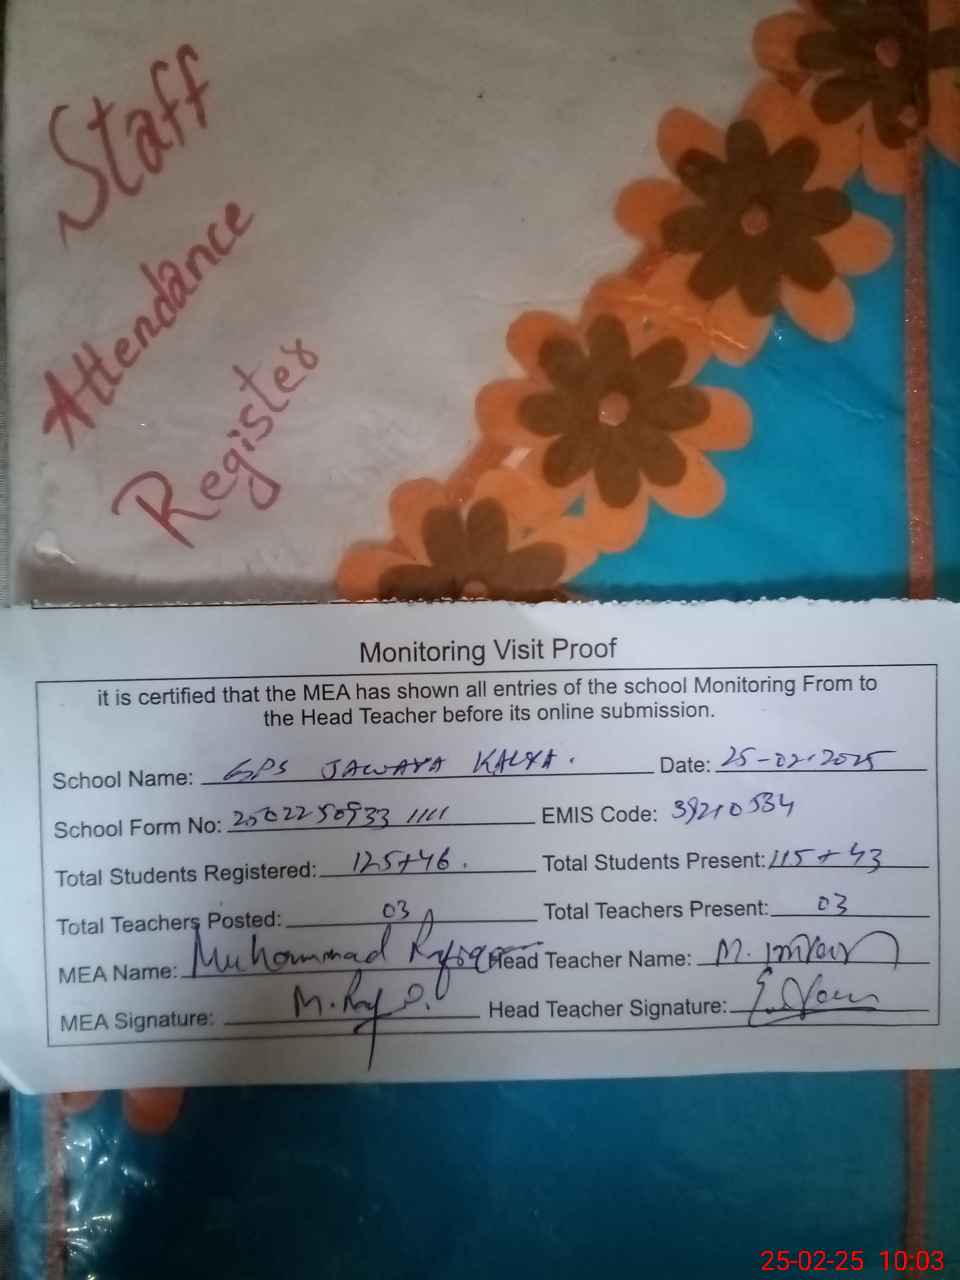 Staff
Attendance
Register
Monitoring Visit Proof
it is certified that the MEA has shown all entries of the school Monitoring From to
the Head Teacher before its online submission.
School Name: GPS JAWAYA KALYA. Date: 25-02-2025
School Form No: 2502250933 1111 EMIS Code: 39210534
Total Students Registered: 125+46. Total Students Present: 115+43
Total Teachers Posted: 03 Total Teachers Present: 03
MEA Name: Muhammad Rafique Head Teacher Name: M. Imran
MEA Signature: Head Teacher Signature:
25-02-25 10:03